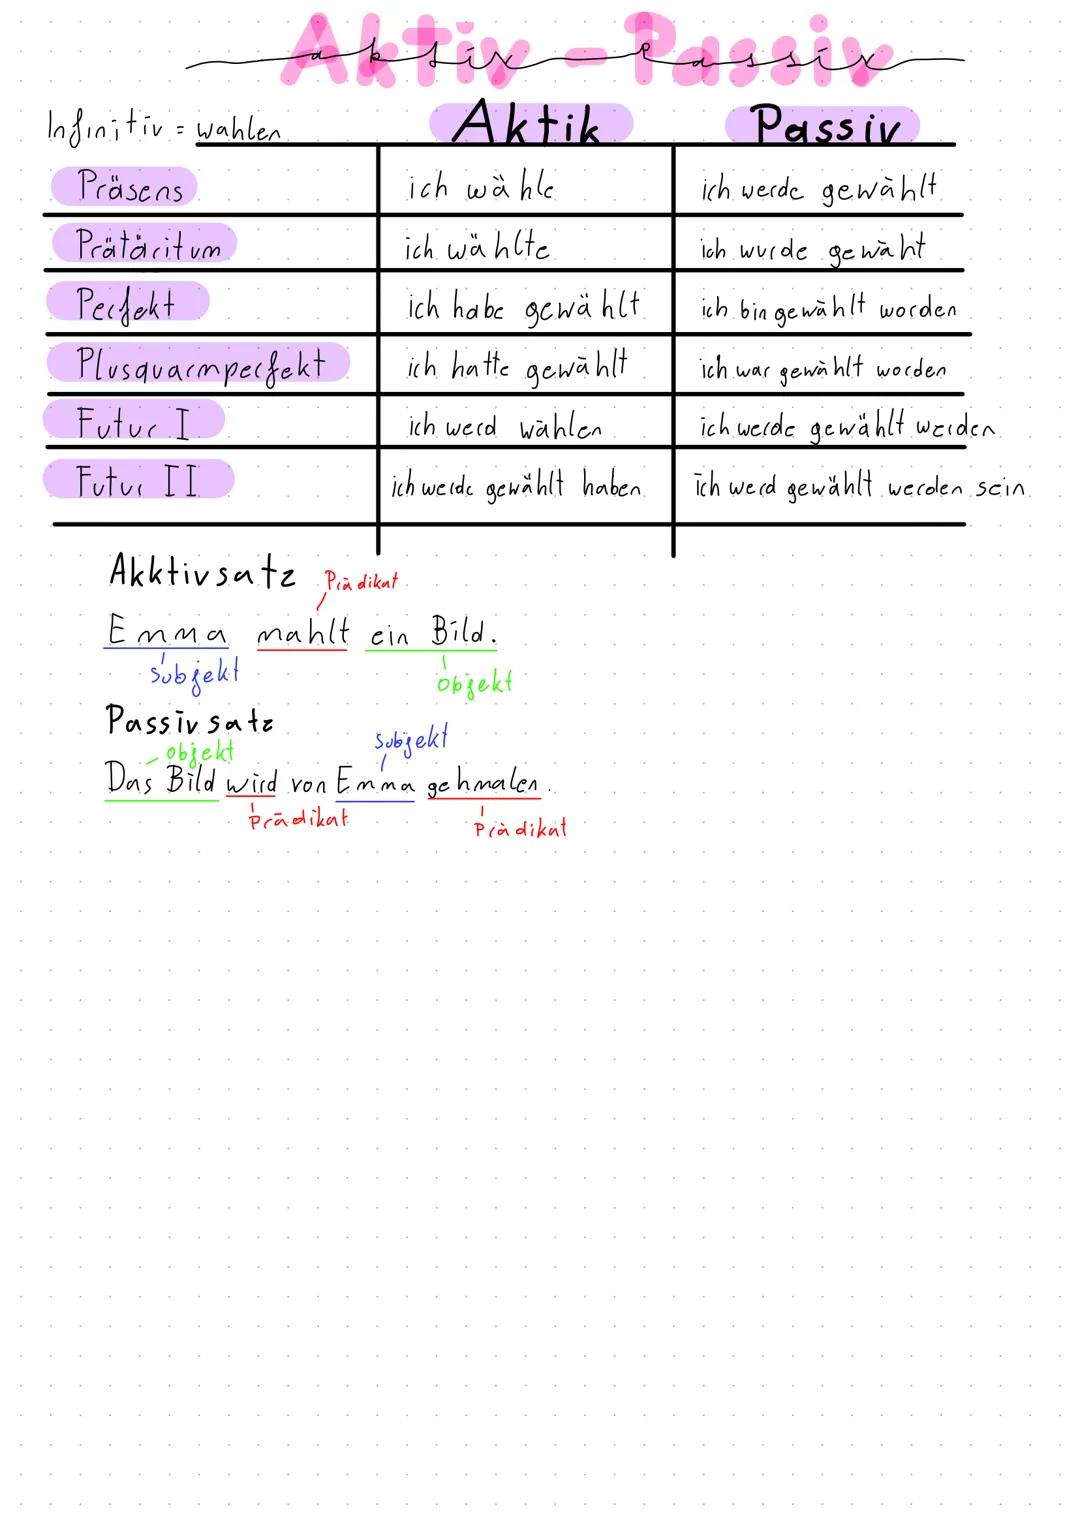 Aktiv - Passiv
aktiv Passiv
Infinitiv = wahlen Aktik Passiv
Präsens ich wähle ich werde gewählt
Prätäritum ich wählte ich wurde gewäht
Perfekt ich habe gewählt ich bin gewählt worden
Plusquarmperfekt ich hatte gewählt ich war gewählt worden
Futur I ich werd wählen ich werde gewählt werden
Futur II ich werde gewählt haben ich werd gewählt werden sein
Akktivsatz Prädikat
Emma mahlt ein Bild.
Subjekt Objekt
Passivsatz
Objekt Subjekt
Das Bild wird von Emma gehmalen.
Prädikat Prädikat